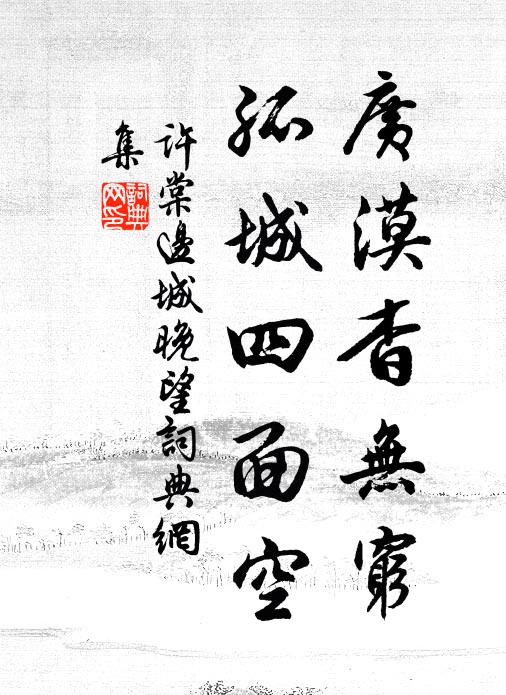 廣漠杳無窮
孤城四面空
許棠邊城晚望詞典網
集
詞典
网印